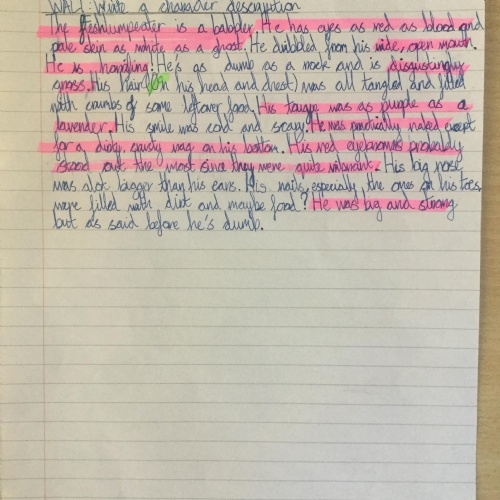 WALT: Write a character description
The fleshlumpeater is a babbler. He has eyes as red as blood and
pale skin as white as a ghost. He dribbled from his wide, open mouth.
He is horrifing! He's as dumb as a rock and is disgustingly
gross. His hair (on his head and chest) was all tangled and filled
with crumbs of some leftover food. His tougue was as purple as a
lavender. His smile was cold and scary. He was practically naked except
for a dirty, crusty rag on his bottom. His red eyebrows probably
stood out the most since they were quite vibrant. His big nose
was alot bigger than his ears. His nails, especially the ones on his toes,
were filled with dirt and maybe food? He was big and strong
but as said before he's dumb.